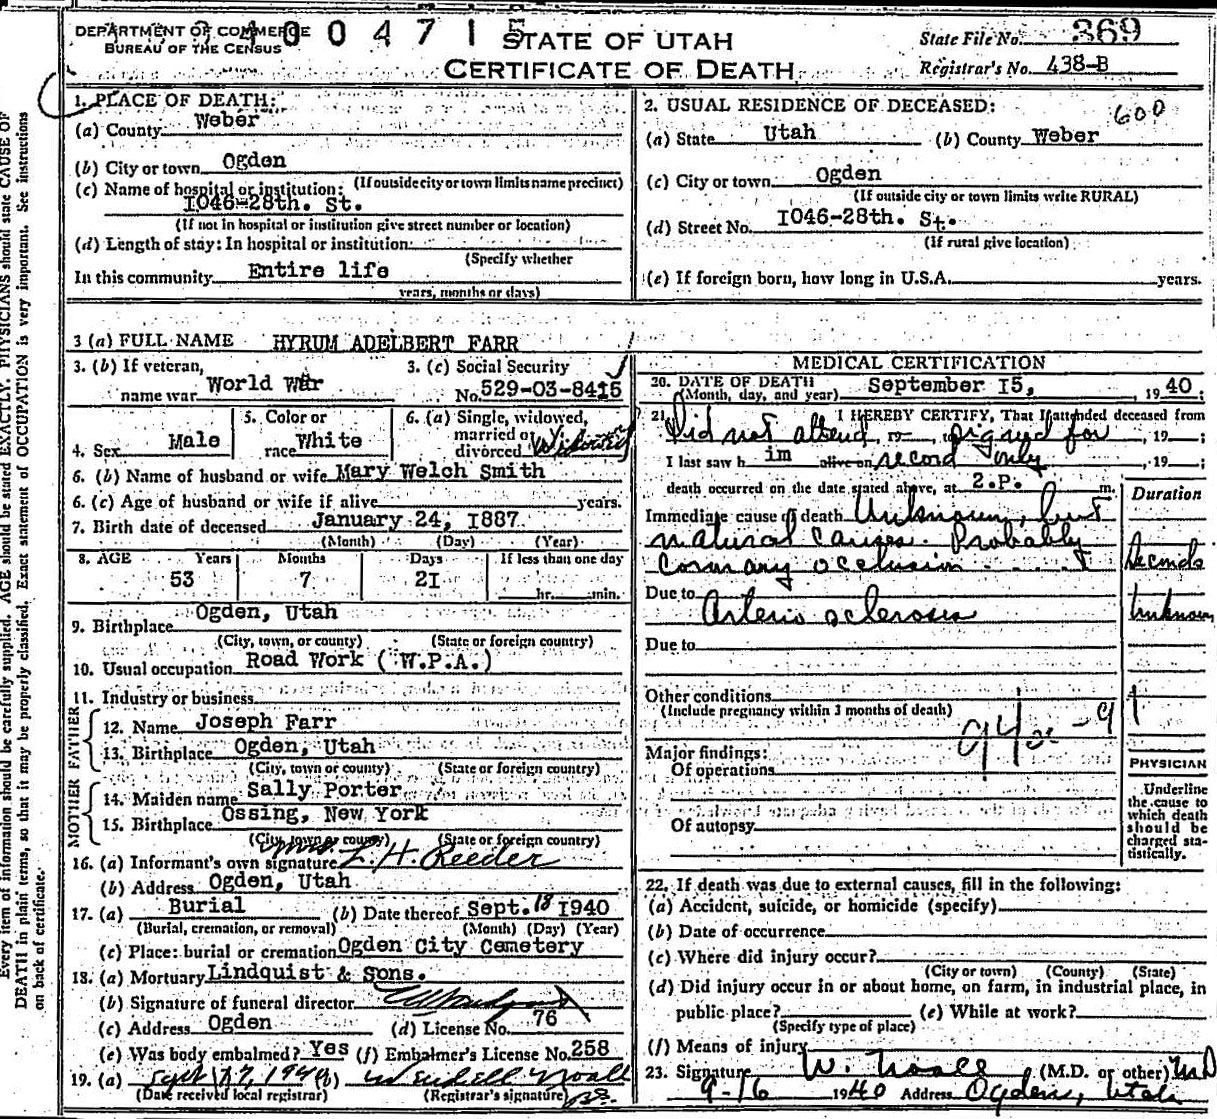 DEPARTMENT OF COMMERCE
BUREAU OF THE CENSUS
34004715
STATE OF UTAH
CERTIFICATE OF DEATH
State File No. 369
Registrar's No. 438-B
1. PLACE OF DEATH:
(a) County Weber
(b) City or town Ogden
(If outside city or town limits name precinct)
(c) Name of hospital or institution:
I046-28th. St.
(If not in hospital or institution give street number or location)
(d) Length of stay: In hospital or institution
(Specify whether
In this community Entire life
years, months or days)
2. USUAL RESIDENCE OF DECEASED:
600
(a) State Utah (b) County Weber
(c) City or town Ogden
(If outside city or town limits write RURAL)
(d) Street No. I046-28th. St.
(If rural give location)
(e) If foreign born, how long in U.S.A. years.
3 (a) FULL NAME HYRUM ADELBERT FARR
3. (b) If veteran,
name war World War
3. (c) Social Security
No. 529-03-8415
4. Sex Male
5. Color or
race White
6. (a) Single, widowed,
married or
divorced Widowed
6. (b) Name of husband or wife Mary Welch Smith
6. (c) Age of husband or wife if alive years.
7. Birth date of deceased January 24, I887
(Month) (Day) (Year)
8. AGE Years Months Days If less than one day
53 7 2I hr. min.
9. Birthplace Ogden, Utah
(City, town, or county) (State or foreign country)
10. Usual occupation Road Work (W.P.A.)
11. Industry or business
FATHER
12. Name Joseph Farr
13. Birthplace Ogden, Utah
(City, town or county) (State or foreign country)
MOTHER
14. Maiden name Sally Porter
15. Birthplace Ossing, New York
(City, town or county) (State or foreign country)
16. (a) Informant's own signature Mrs. L. H. Reeder
(b) Address Ogden, Utah
17. (a) Burial (b) Date thereof Sept. 18 I940
(Burial, cremation, or removal) (Month) (Day) (Year)
(c) Place: burial or cremation Ogden City Cemetery
18. (a) Mortuary Lindquist & Sons.
(b) Signature of funeral director
(c) Address Ogden (d) License No. 76
(e) Was body embalmed? Yes (f) Embalmer's License No. 258
19. (a) Sept 17, 1940 (b) Wendell Noall
(Date received local registrar) (Registrar's signature)
MEDICAL CERTIFICATION
20. DATE OF DEATH
(Month, day, and year) September I5, 1940;
21. I HEREBY CERTIFY, That I attended deceased from
Did not attend, 19 , to signed for , 19 ;
I last saw him alive on record only , 19 ;
death occurred on the date stated above, at 2.P. m.
Duration
Immediate cause of death Unknown, but
natural causes. Probably
coronary occlusion Seconds
Due to Arterio sclerosis Unknown
Due to
Other conditions
(Include pregnancy within 3 months of death)
Major findings:
Of operations
Of autopsy
PHYSICIAN
Underline
the cause to
which death
should be
charged sta-
tistically.
22. If death was due to external causes, fill in the following:
(a) Accident, suicide, or homicide (specify)
(b) Date of occurrence
(c) Where did injury occur?
(City or town) (County) (State)
(d) Did injury occur in or about home, on farm, in industrial place, in
public place? (e) While at work?
(Specify type of place)
(f) Means of injury
23. Signature W. Noall (M.D. or other) MD
9-16 1940 Address Ogden, Utah
Every item of information should be carefully supplied. AGE should be stated EXACTLY. PHYSICIANS should state CAUSE OF
DEATH in plain terms, so that it may be properly classified. Exact statement of OCCUPATION is very important. See instructions
on back of certificate.